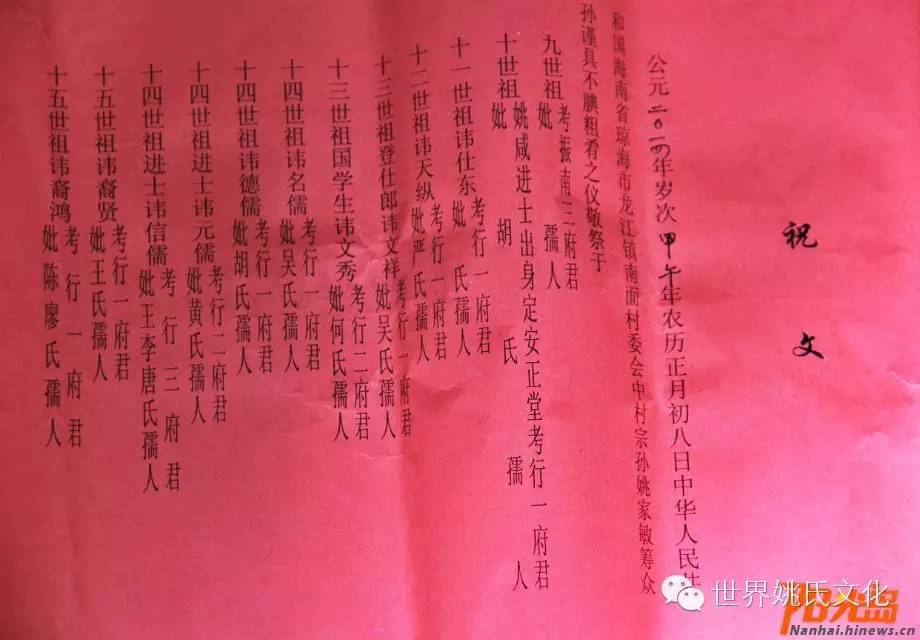 祝文
公元二〇一四年岁次甲午年农历正月初八日中华人民共
和国海南省琼海市龙江镇南面村委会中村宗孙姚家敏等众
孙谨具不腆粗肴之仪敬祭于
九世祖考振南三府君
妣孺人
十世祖姚咸进士出身定安正堂考行一府君
妣胡氏孺人
十一世祖讳仕东考行一府君
妣氏孺人
十二世祖讳天纵考行一府君
妣严氏孺人
十三世祖登仕郎讳文祥考行一府君
妣吴氏孺人
十三世祖国学生讳文秀考行二府君
妣何氏孺人
十四世祖讳名儒考行一府君
妣吴氏孺人
十四世祖讳德儒考行一府君
妣胡氏孺人
十四世祖进士讳元儒考行二府君
妣黄氏孺人
十四世祖进士讳信儒考行三府君
妣王李唐氏孺人
十五世祖讳裔贤考行一府君
妣王氏孺人
十五世祖讳裔鸿考行一府君
妣陈廖氏孺人
世界姚氏文化
阳光岛
Nanhai.hinews.cn